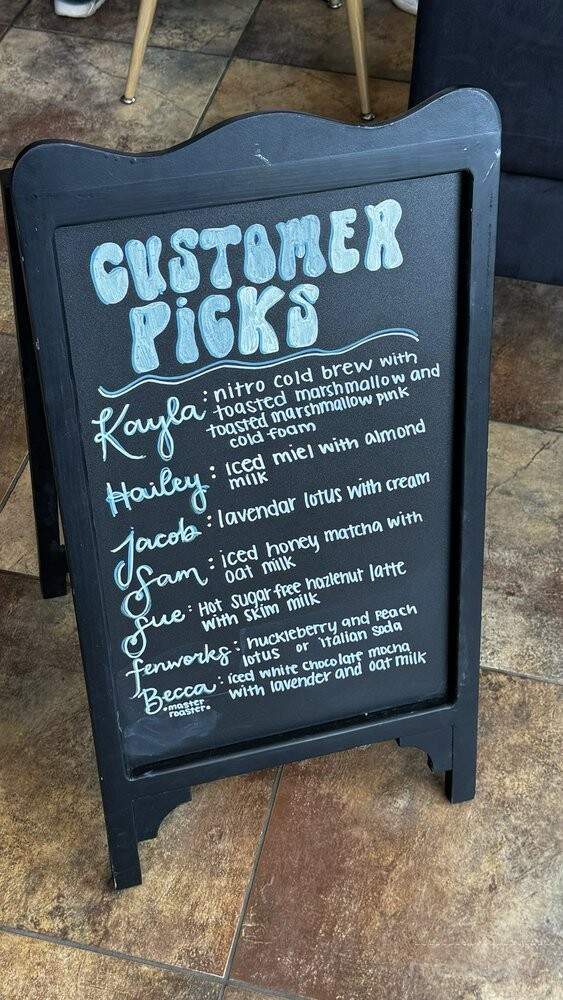 CUSTOMER
PiCKS
Kayla: nitro cold brew with
toasted marshmallow and
toasted marshmallow pink
cold foam
Hailey: Iced miel with almond
milk
Jacob: lavendar lotus with cream
Sam: iced honey matcha with
oat milk
Sue: Hot sugar free hazlenut latte
with skim milk
fenworks: huckleberry and Peach
lotus or italian soda
Becca: iced white chocolate mocha
with lavender and oat milk
•master
roaster•